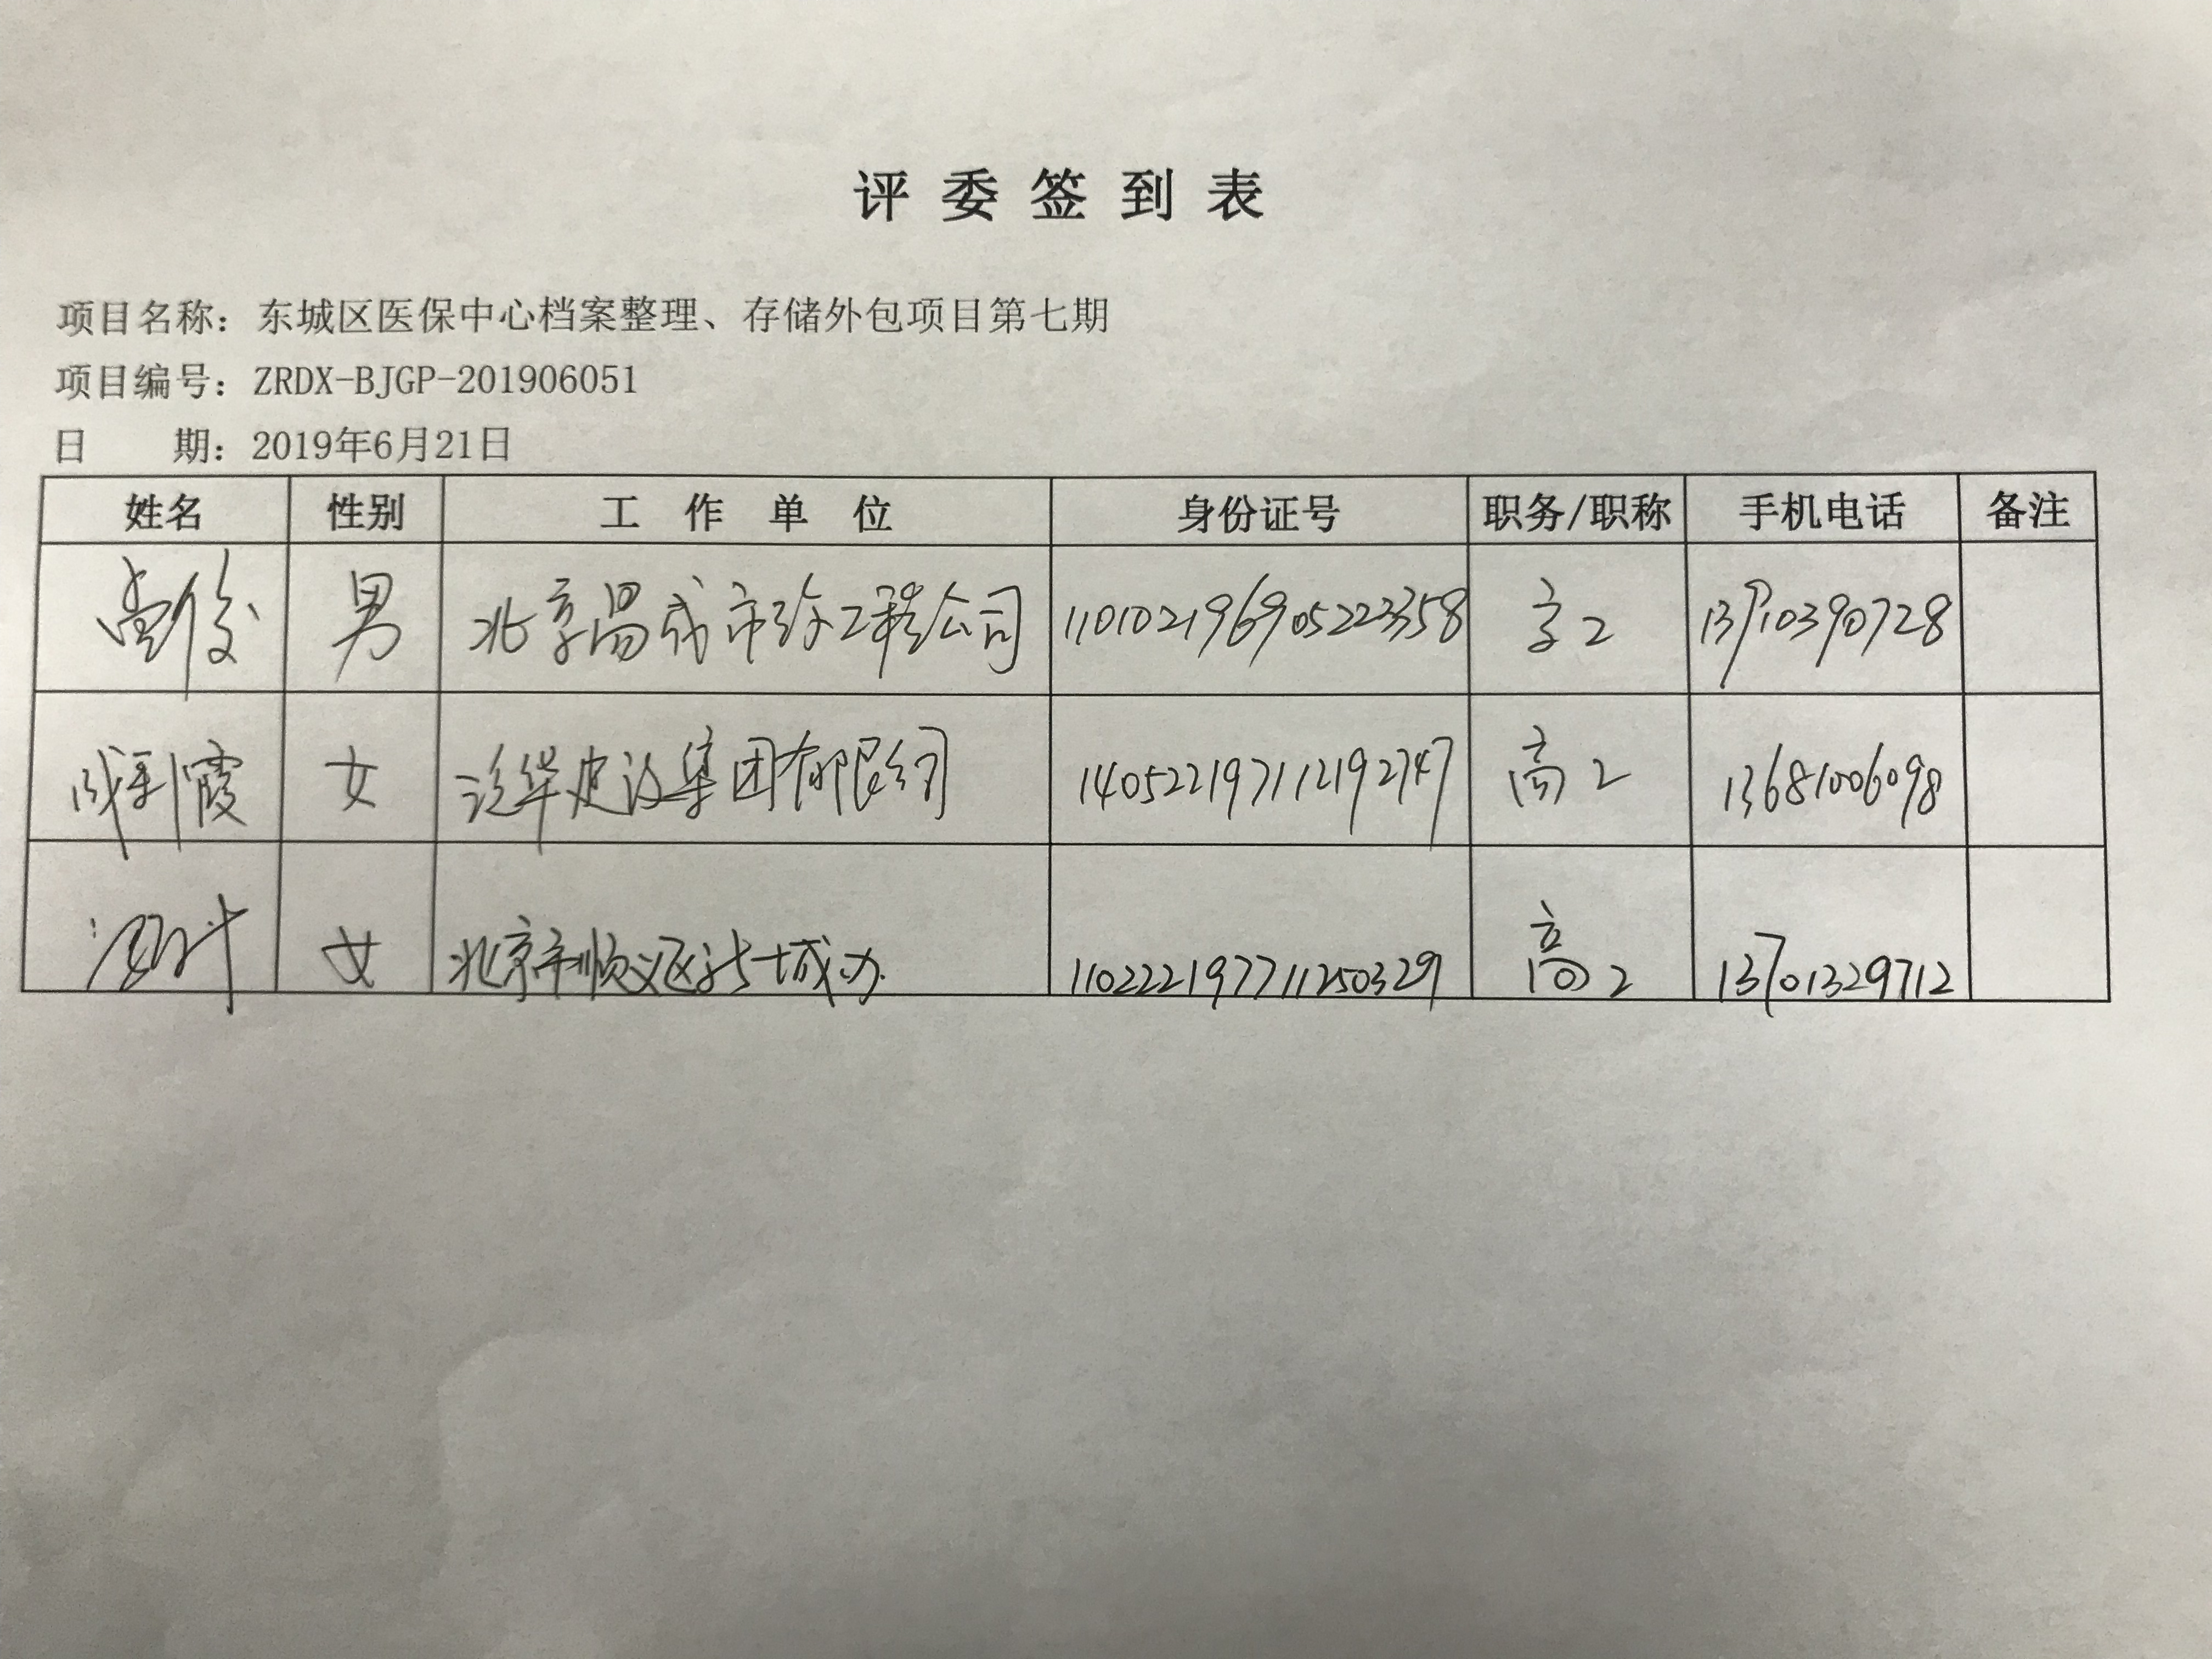 评委签到表
项目名称：东城区医保中心档案整理、存储外包项目第七期
项目编号：ZRDX-BJGP-201906051
日 期：2019年6月21日
姓名 性别 工作单位 身份证号 职务/职称 手机电话 备注
男 北京昌成市政工程公司 110102196905223358 高工 13910390728
霞 女 泛华建设集团有限公司 140522197112192747 高工 13681006098
女 北京市顺义区 城办 110222197711250329 高工 13701329712